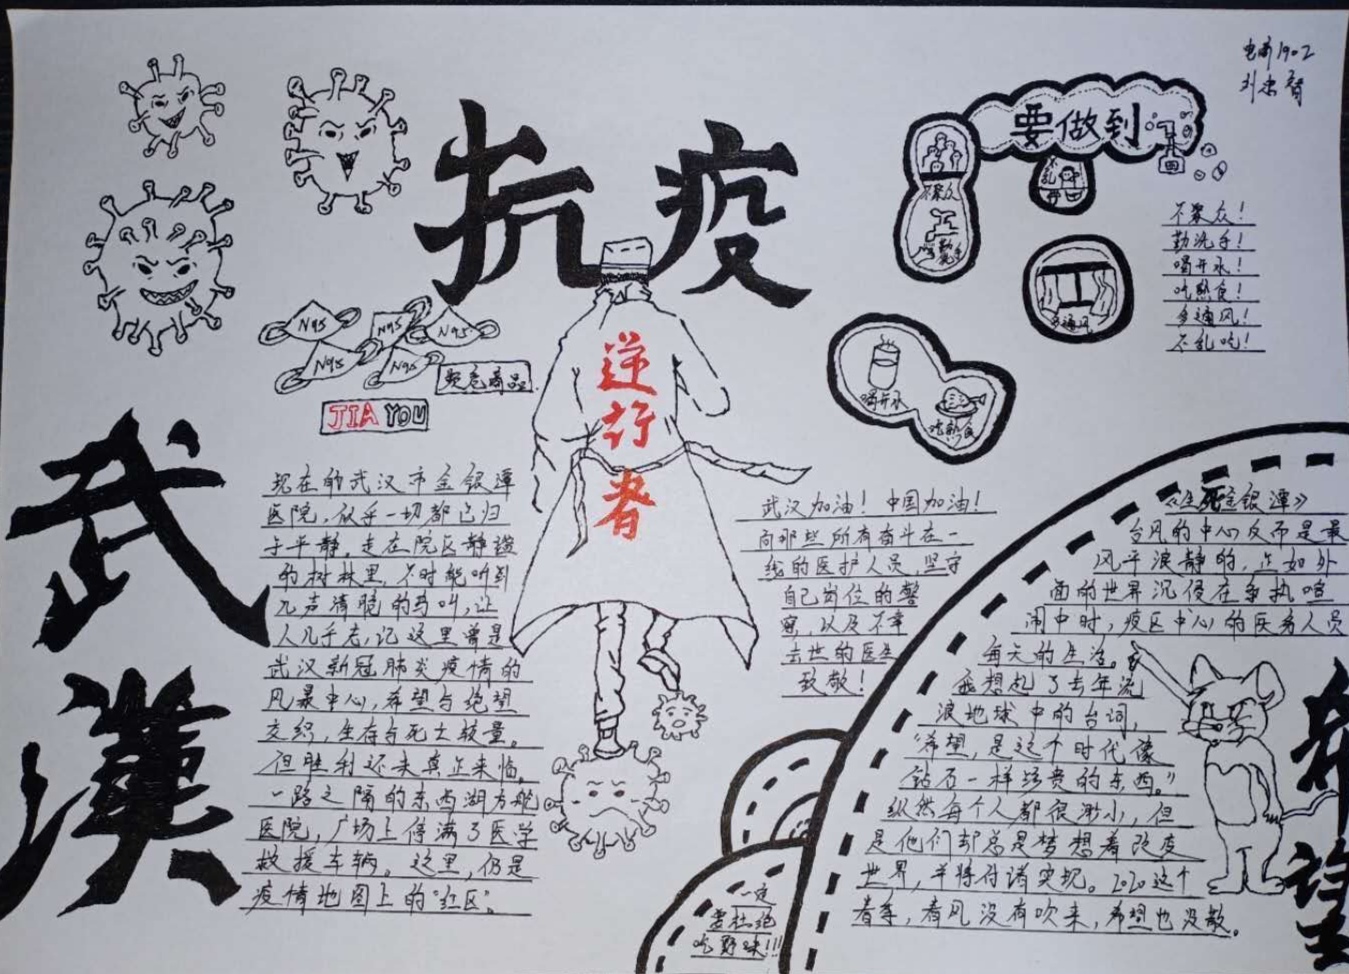 抗疫
武漢
逆行者
N95
N95
N95
N95
N95
JIA YOU
要做到
不聚众
勤洗手
多通风
喝开水
吃熟食
不聚众！
勤洗手！
喝开水！
吃熟食！
多通风！
不乱吃！
现在的武汉市金银潭
医院，似乎一切都已归
于平静，走在院区静谧
的树林里，不时能听到
几声清脆的鸟叫，让
人几乎忘记这里曾是
武汉新冠肺炎疫情的
风暴中心，希望与绝望
交织，生存与死亡较量。
但胜利还未真正来临，
一路之隔的东西湖方舱
医院，广场上停满了医学
救援车辆。这里，仍是
疫情地图上的“红区”。
武汉加油！中国加油！
向那些所有奋斗在一
线的医护人员，坚守
自己岗位的警
察，以及不幸
去世的医生
致敬！
一定
要杜绝
吃野味!!!
台风的中心反而是最
风平浪静的，正如外
面的世界沉浸在争执喧
闹中时，疫区中心的医务人员
每天的生活。
我想起了去年流
浪地球中的台词，
“希望，是这个时代像
钻石一样珍贵的东西。”
纵然每个人都很渺小，但
是他们却总是梦想着改变
世界，并将付诸实现。2020这个
春季，春风没有吹来，希望也没散。
希望